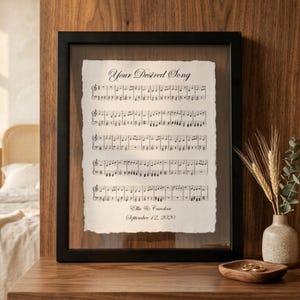 Your Desired Song
Ellie & Candon
September 12, 2020